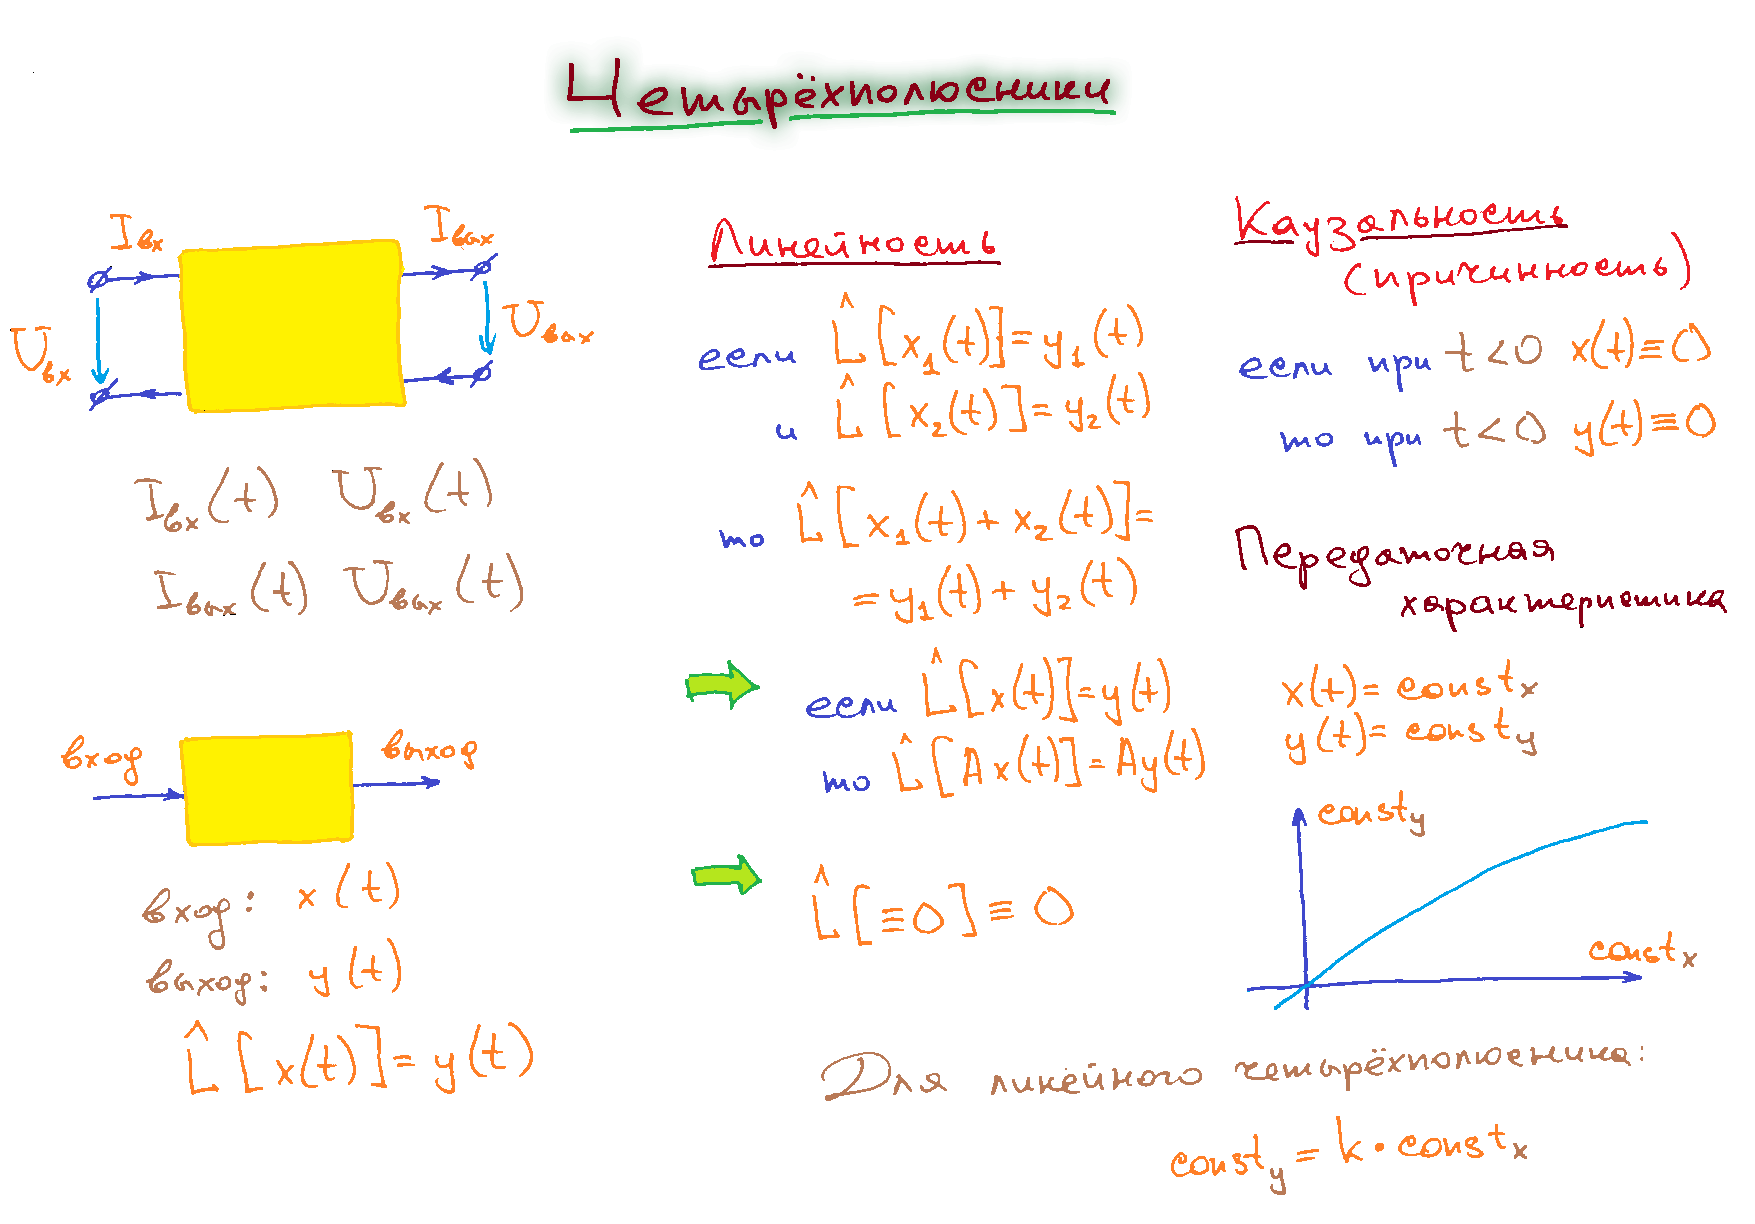 Четырёхполюсники
Iвх
Iвых
Uвх
Uвых
Iвх(t) Uвх(t)
Iвых(t) Uвых(t)
вход
выход
вход: x(t)
выход: y(t)
L̂[x(t)]=y(t)
Линейность
если L̂[x₁(t)]=y₁(t)
и L̂[x₂(t)]=y₂(t)
то L̂[x₁(t)+x₂(t)]=
=y₁(t)+y₂(t)
если L̂[x(t)]=y(t)
то L̂[Ax(t)]=Ay(t)
L̂[≡0]≡0
Каузальность
(причинность)
если при t<0 x(t)≡0
то при t<0 y(t)≡0
Передаточная
характеристика
x(t)=constx
y(t)=consty
consty
constx
Для линейного четырёхполюсника:
consty=k·constx